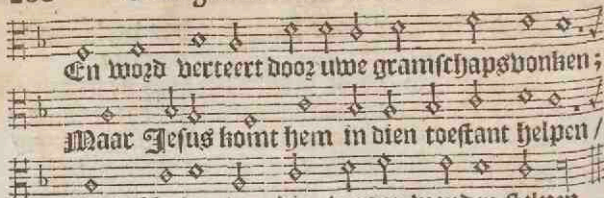 En word verteert door uwe gramschapsvonken;
Maar Jesus komt hem in dien toestant helpen /